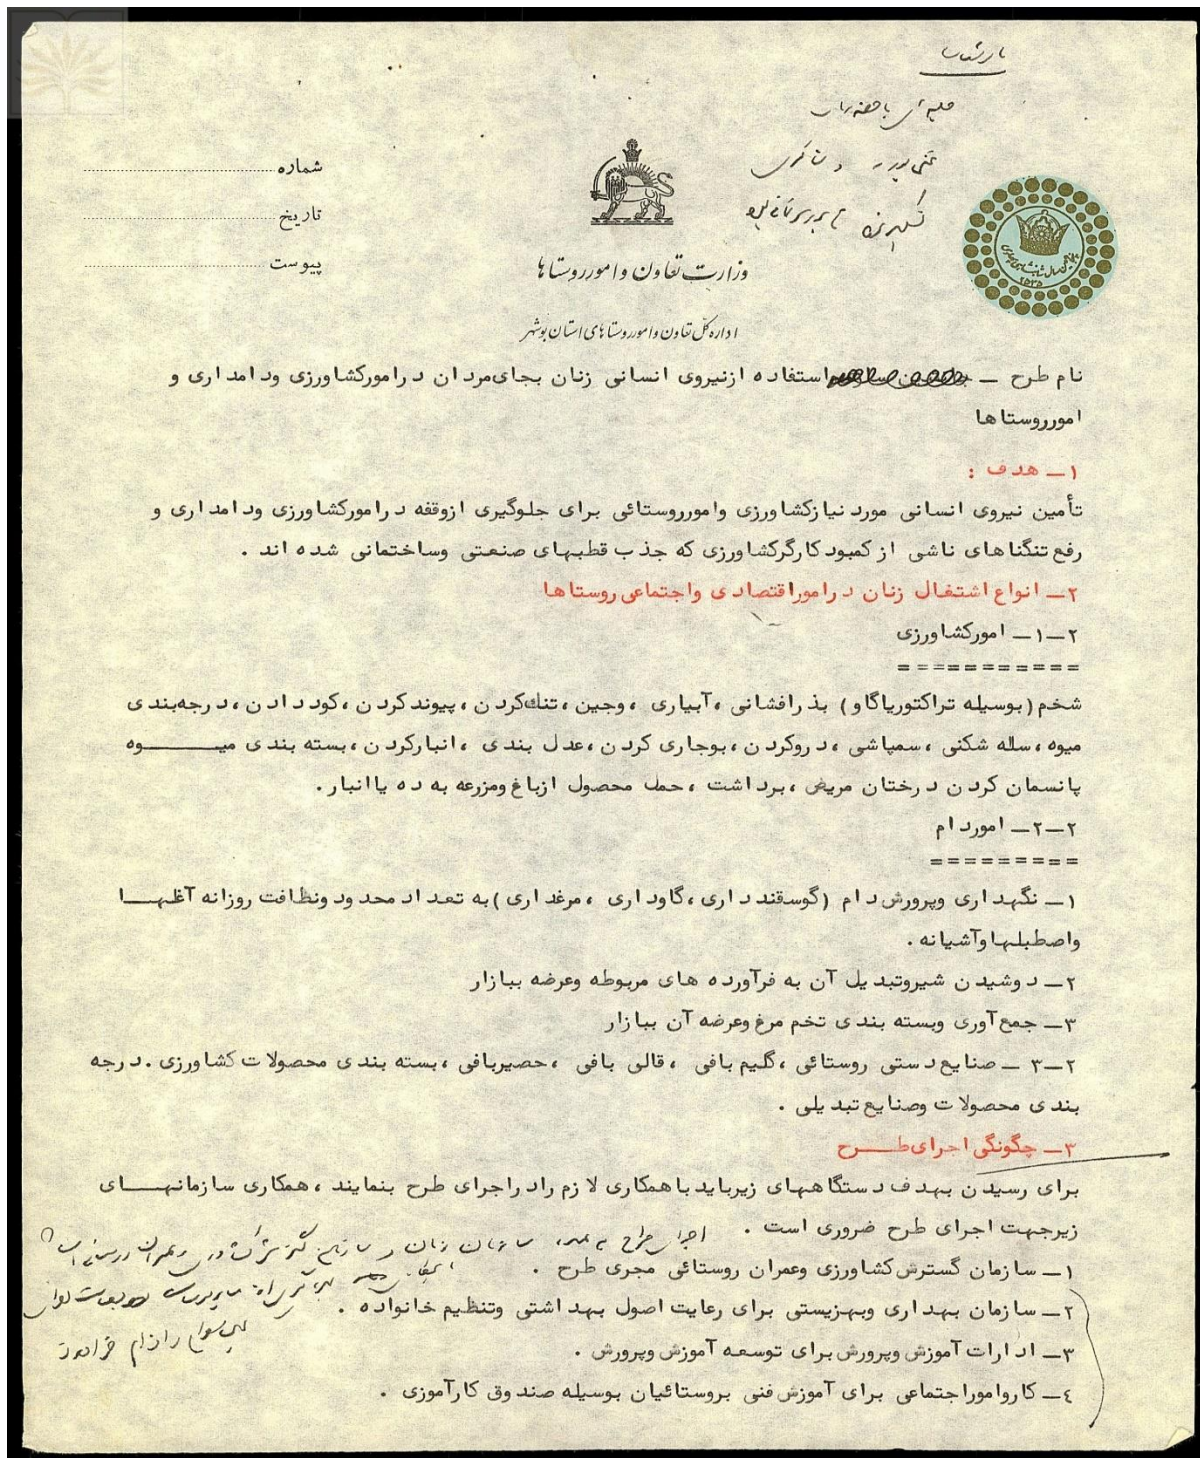 شماره
تاریخ
پیوست
وزارت تعاون و امور روستاها
اداره کل تعاون و امور روستاهای استان بوشهر
۲۵۳۵
نام طرح ـ استفاده ازنیروی انسانی زنان بجای مردان درامورکشاورزی ودامداری و
امورروستاها
۱ـ هدف :
تأمین نیروی انسانی مورد نیازکشاورزی وامورروستائی برای جلوگیری ازوقفه درامورکشاورزی ودامداری و
رفع تنگناهای ناشی از کمبود کارگرکشاورزی که جذب قطبهای صنعتی وساختمانی شده اند .
۲ـ انواع اشتغال زنان درامور اقتصادی واجتماعی روستاها
۲ـ۱ـ امورکشاورزی
===========
شخم (بوسیله تراکتوریاگاو) بذرافشانی ، آبیاری ، وجین ، تنك کردن ، پیوند کردن ، کود دادن ، درجه بندی
میوه ، سله شکنی ، سمپاشی ، دروکردن ، بوجاری کردن ، عدل بندی ، انبارکردن ، بسته بندی میـــوه
پانسمان کردن درختان مریض ، برداشت ، حمل محصول ازباغ ومزرعه به ده یاانبار .
۲ـ۲ـ امور دام
=========
۱ـ نگهداری وپرورش دام (گوسفندداری ، گاوداری ، مرغداری) به تعداد محدود ونظافت روزانه آغلهـا
واصطبلهاوآشیانه .
۲ـ دوشیدن شیروتبدیل آن به فرآورده های مربوطه وعرضه ببازار
۳ـ جمع آوری وبسته بندی تخم مرغ وعرضه آن ببازار
۲ـ۳ ـ صنایع دستی روستائی ، گلیم بافی ، قالی بافی ، حصیربافی ، بسته بندی محصولات کشاورزی . درجه
بندی محصولات وصنایع تبدیلی .
۳ـ چگونگی اجرای طـــرح
برای رسیدن بهدف دستگاههای زیرباید باهمکاری لازم راد راجرای طرح بنمایند ، همکاری سازمانهـــای
زیرجهت اجرای طرح ضروری است .
۱ـ سازمان گسترش کشاورزی وعمران روستائی مجری طرح .
۲ـ سازمان بهداری وبهزیستی برای رعایت اصول بهداشتی وتنظیم خانواده .
۳ـ ادارات آموزش وپرورش برای توسعه آموزش وپرورش .
۴ـ کارواموراجتماعی برای آموزش فنی بروستائیان بوسیله صندوق کارآموزی .